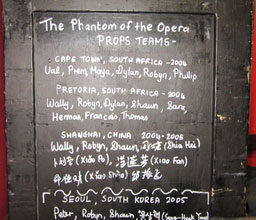 The Phantom of the Opera
PROPS TEAMS-
CAPE TOWN, SOUTH AFRICA - 2004
Val, Prem, Maya, Dylan, Robyn, Phillip
PRETORIA, SOUTH AFRICA - 2004
Wally, Robyn, Dylan, Shaun, Sarg
Herman, Francois, Thomas
SHANGHAI, CHINA 2004-2005
Wally, Robyn, Shaun, (Shia Hai)
(Xiǎo Pǒ), (Xiao Fan)
(Xiǎo Shǐ)
SEOUL, SOUTH KOREA 2005
Peter, Robyn, Shaun